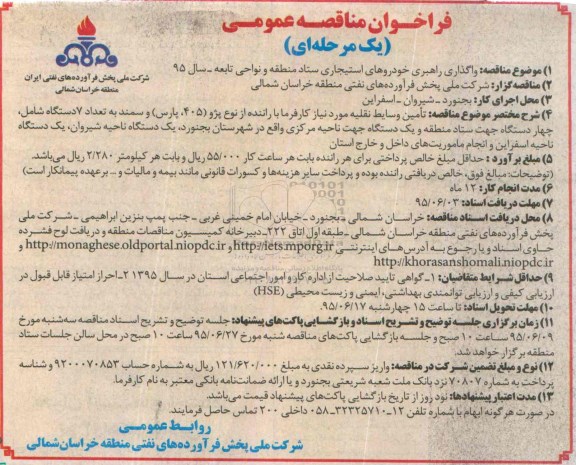 فراخوان مناقصه عمومی
(یک مرحله‌ای)
شرکت ملی پخش فرآورده‌های نفتی ایران
منطقه خراسان شمالی
۱) موضوع مناقصه: واگذاری راهبری خودروهای استیجاری ستاد منطقه و نواحی تابعه ـ سال ۹۵
۲) مناقصه‌گزار: شرکت ملی پخش فرآورده‌های نفتی منطقه خراسان شمالی
۳) محل اجرای کار: بجنورد ـ شیروان ـ اسفراین
۴) شرح مختصر موضوع مناقصه: تأمین وسایط نقلیه مورد نیاز کارفرما با راننده از نوع پژو (۴۰۵، پارس) و سمند به تعداد ۷دستگاه شامل،
چهار دستگاه جهت ستاد منطقه و یک دستگاه جهت ناحیه مرکزی واقع در شهرستان بجنورد، یک دستگاه ناحیه شیروان، یک دستگاه
ناحیه اسفراین و انجام ماموریت‌های داخل و خارج استان
۵) مبلغ برآورد : حداقل مبلغ خالص پرداختی برای هر راننده بابت هر ساعت کار ۵۵/۰۰۰ ریال و بابت هر کیلومتر ۲/۲۸۰ ریال می‌باشد.
(توضیحات: مبالغ فوق، خالص دریافتی راننده بوده و پرداخت سایر هزینه‌ها و کسورات قانونی مانند بیمه و مالیات و .. برعهده پیمانکار است)
۶) مدت انجام کار: ۱۲ ماه
۷) مهلت دریافت اسناد: ۹۵/۰۶/۰۳
۸) محل دریافت اسناد مناقصه: خراسان شمالی ـ بجنورد ـ خیابان امام خمینی غربی ـ جنب پمپ بنزین ابراهیمی ـ شرکت ملی
پخش فرآورده‌های نفتی منطقه خراسان شمالی ـ طبقه اول اتاق ۲۲۲ـ دبیرخانه کمیسیون مناقصات منطقه و دریافت لوح فشرده
حاوی اسناد و یا رجوع به آدرس‌های اینترنتی http://iets.mporg.ir و http://monaghese.oldportal.niopdc.ir و
http://khorasanshomali.niopdc.ir
۹) حداقل شرایط متقاضیان: ۱ـ گواهی تایید صلاحیت از اداره کار و امور اجتماعی استان در سال ۱۳۹۵ ۲ـ احراز امتیاز قابل قبول در
ارزیابی کیفی و ارزیابی توانمندی بهداشتی، ایمنی و زیست محیطی (HSE)
۱۰) مهلت تحویل اسناد: تا ساعت ۱۵ چهارشنبه ۹۵/۰۶/۱۷.
۱۱) زمان برگزاری جلسه توضیح و تشریح اسناد و بازگشایی پاکت‌های پیشنهاد: جلسه توضیح و تشریح اسناد مناقصه سه‌شنبه مورخ
۹۵/۰۶/۰۹ ساعت ۱۰ صبح و جلسه بازگشایی پاکت‌های مناقصه شنبه مورخ ۹۵/۰۶/۲۷ ساعت ۱۰ صبح در محل سالن جلسات ستاد
منطقه برگزار خواهد شد.
۱۲) نوع و مبلغ تضمین شرکت در مناقصه: واریز سپرده نقدی به مبلغ ۱۲۱/۶۲۰/۰۰۰ ریال به شماره حساب ۹۲۰۰۰۷۰۸۵۳ و شناسه
پرداخت به شماره ۷۰۸۰۷ نزد بانک ملت شعبه شریعتی بجنورد و یا ارائه ضمانت‌نامه بانکی معتبر به نام کارفرما.
۱۳) مدت اعتبار پیشنهادها: نود روز از تاریخ بازگشایی پاکت‌های پیشنهاد قیمت می‌باشد.
در صورت هر گونه ابهام با شماره تلفن ۱۲-۳۲۳۲۵۷۱۰-۰۵۸ داخلی ۲۰۰ تماس حاصل فرمایند.
روابط عمومی
شرکت ملی پخش فرآورده‌های نفتی منطقه خراسان شمالی